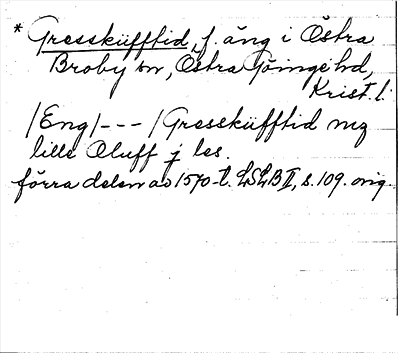 * Gresskiifftid, f. äng i Östra
Broby sn, Östra Göinge hd,
Krist. l.
/Eng/ - - - /Gresskiifftid meg
lille Oluff j les.
förra delen av 1570-t. LSLB II, s. 109. orig.